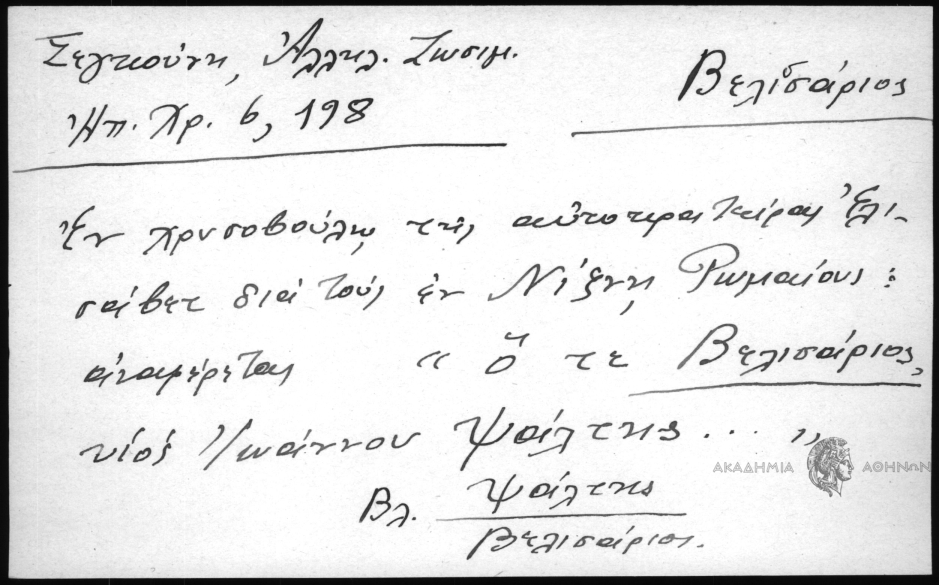 Σεγκούνη, Ἀλληλ. Ζωσιμ.
Βελισάριος
Ἠπ. Χρ. 6, 198
Ἐν χρυσοβούλῳ τῆς αὐτοκρατείρας Ἐλι-
σάβετ διὰ τοὺς ἐν Νίζνῃ Ρωμαίους:
ἀναφέρεται " ὅ τε Βελισάριος,
υἱός Ἰωάννου Ψάλτης ... "
ΑΚΑΔΗΜΙΑ ΑΘΗΝΩΝ
Βλ. Ψάλτης
Βελισάριος.